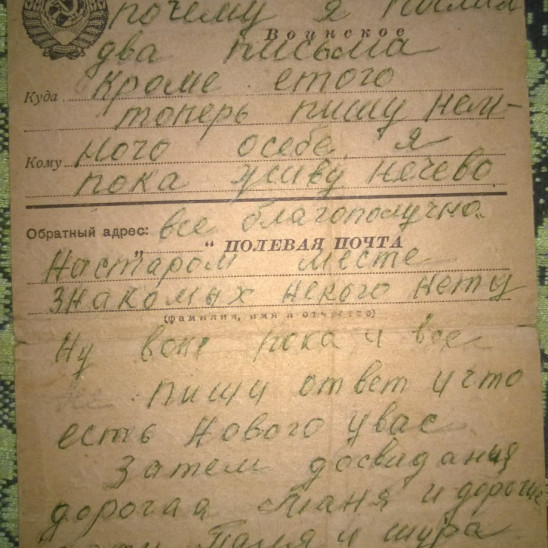 почему я
Воинское
два письма
Куда кроме етого
топерь пишу нем-
Кому ного осебе, я
пока живу нечево
Обратный адрес: все благополучно.
„ “ ПОЛЕВАЯ ПОЧТА
Настаром месте
знакомых некого нету
(фамилия, имя и отчество)
Ну вот пока и все
пиши ответ и что
есть нового увас
Затем досвидания
дорогая Маня и дорогие
Таня и шура